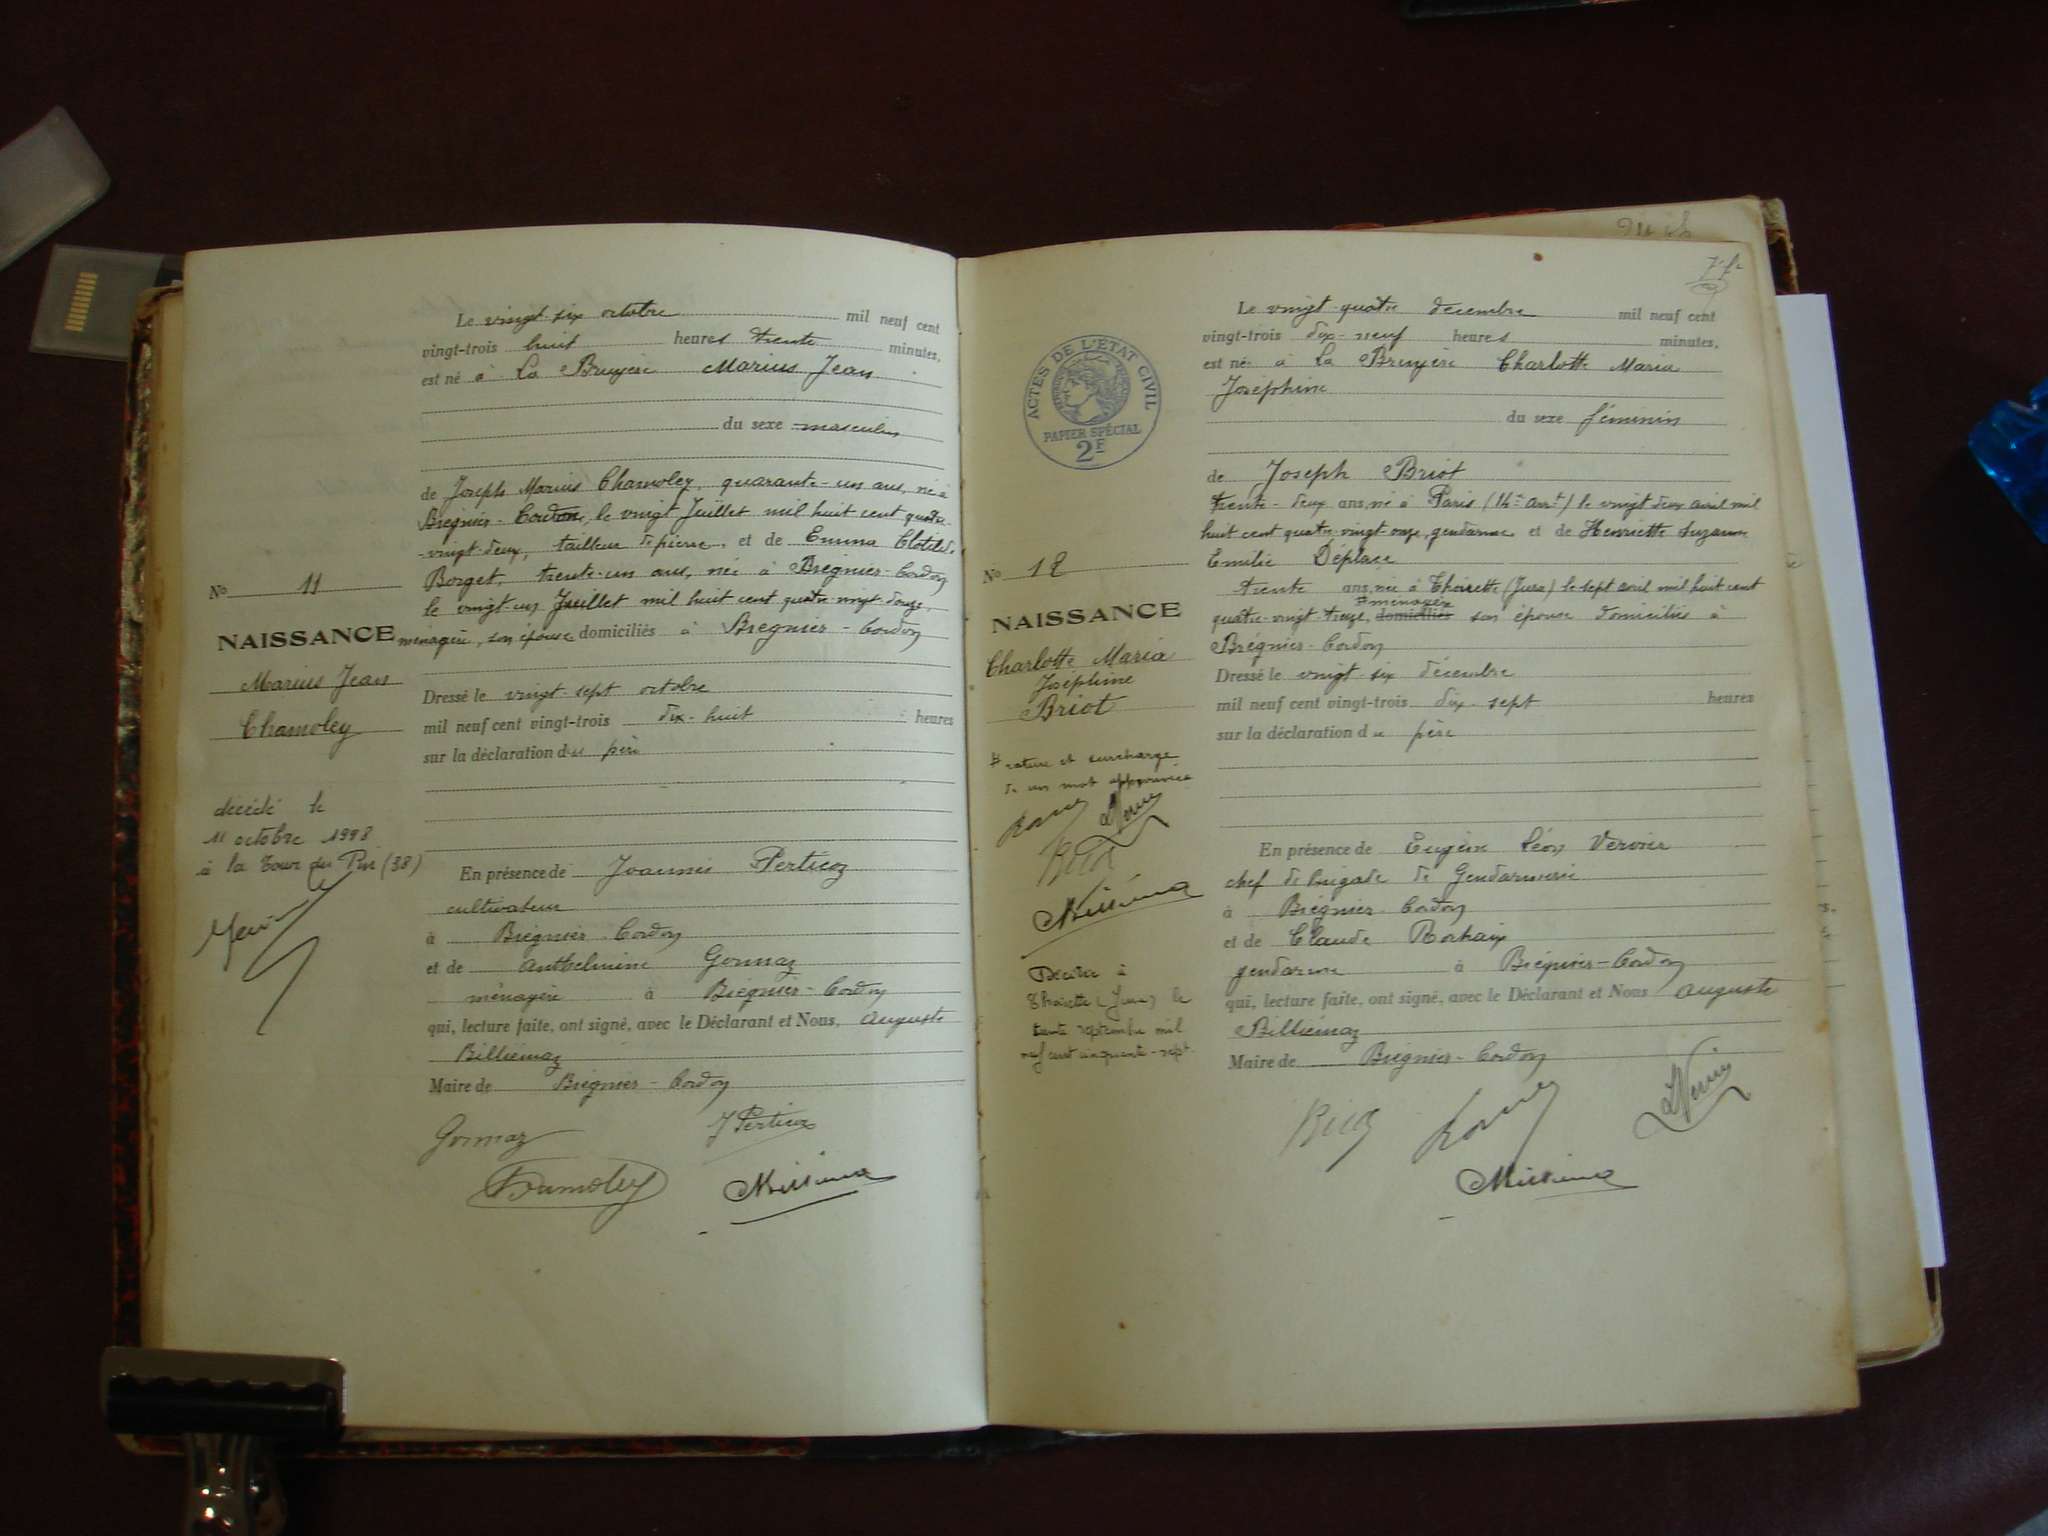 Le vingt-six octobre mil neuf cent
vingt-trois huit heures trente minutes,
est né à La Bruyère Marius Jean
du sexe masculin
de Joseph Marius Chamoley, quarante-un ans, né à
Brégnier-Cordon, le vingt Juillet mil huit cent quatre-
-vingt-deux, tailleur de pierre, et de Emma Clotilde
Borget, trente-un ans, née à Brégnier-Cordon
le vingt-un Juillet mil huit cent quatre-vingt-douze,
ménagère, son épouse domiciliés à Brégnier-Cordon
Dressé le vingt-sept octobre
mil neuf cent vingt-trois dix-huit heures
sur la déclaration du père
En présence de Joannès Perticoz
cultivateur
à Brégnier-Cordon
et de Anthelmine Gonnaz
ménagère à Brégnier-Cordon
qui, lecture faite, ont signé, avec le Déclarant et Nous, Auguste
Billiémaz
Maire de Brégnier-Cordon
Gonnaz J Perticoz
Chamoley
No 11
NAISSANCE
Marius Jean
Chamoley
décédé le
11 octobre 1998
à la Tour du Pin (38)
Le vingt-quatre décembre mil neuf cent
vingt-trois dix-neuf heures minutes,
est née à La Bruyère Charlotte Maria
Joséphine
du sexe féminin
de Joseph Briot
trente-deux ans, né à Paris (14e arrt) le vingt deux avril mil
huit cent quatre-vingt onze, gendarme et de Henriette Suzanne
Emilie Déplace
trente ans, née à Thoirette (Jura) le sept avril mil huit cent
# ménagère
quatre-vingt-treize, domiciliés son épouse domiciliés à
Brégnier-Cordon
Dressé le vingt-six décembre
mil neuf cent vingt-trois dix-sept heures
sur la déclaration du père
En présence de Eugène Léon Vervier
chef de brigade de Gendarmerie
à Brégnier-Cordon
et de Claude Rochaix
gendarme à Brégnier-Cordon
qui, lecture faite, ont signé, avec le Déclarant et Nous Auguste
Billiémaz
Maire de Brégnier-Cordon
ACTES DE L'ÉTAT CIVIL
PAPIER SPÉCIAL
2F
No 12
NAISSANCE
Charlotte Maria
Joséphine
Briot
# rature et surcharge
de un mot approuvées
Décédée à
Thoirette (Jura) le
trente septembre mil
neuf cent cinquante-sept.